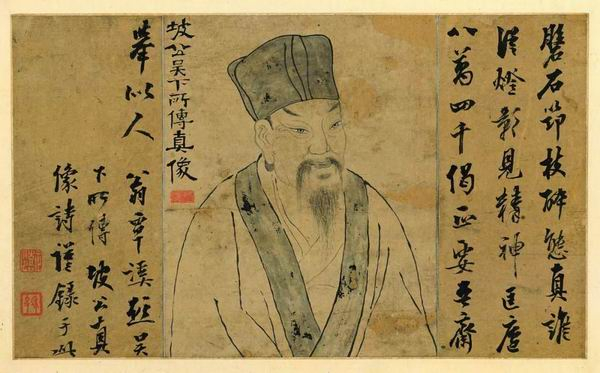 石笻枝醉態真誰
從燈影見精神匡廬
八萬四千偈正要齋
坡公吳下所傳真像
舉似人 翁覃溪題吳
下所傳坡公真
像詩謹錄于此